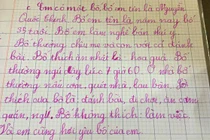 1. Em có mẹ, bố, bố em tên là Nguyễn
Quốc Thịnh. Bố em tên là năm nay bố
35 tuổi. Bố em làm nghề bán thú y.
Bố thương chiu mẹ và con với cô đánh
bài. Bố thích ăn nhất là hoa quả. Bố
thường ngủ dậy lúc 7 giờ 60. Ở nhà bố
thường nấu cơm, quét nhà, lau bàn. Sở
thích của bố là: đánh bài, đi chơi, ăn cơm
quán, ngủ. Bố không thích: làm việc.
Em cũng hơi yêu bố của em.